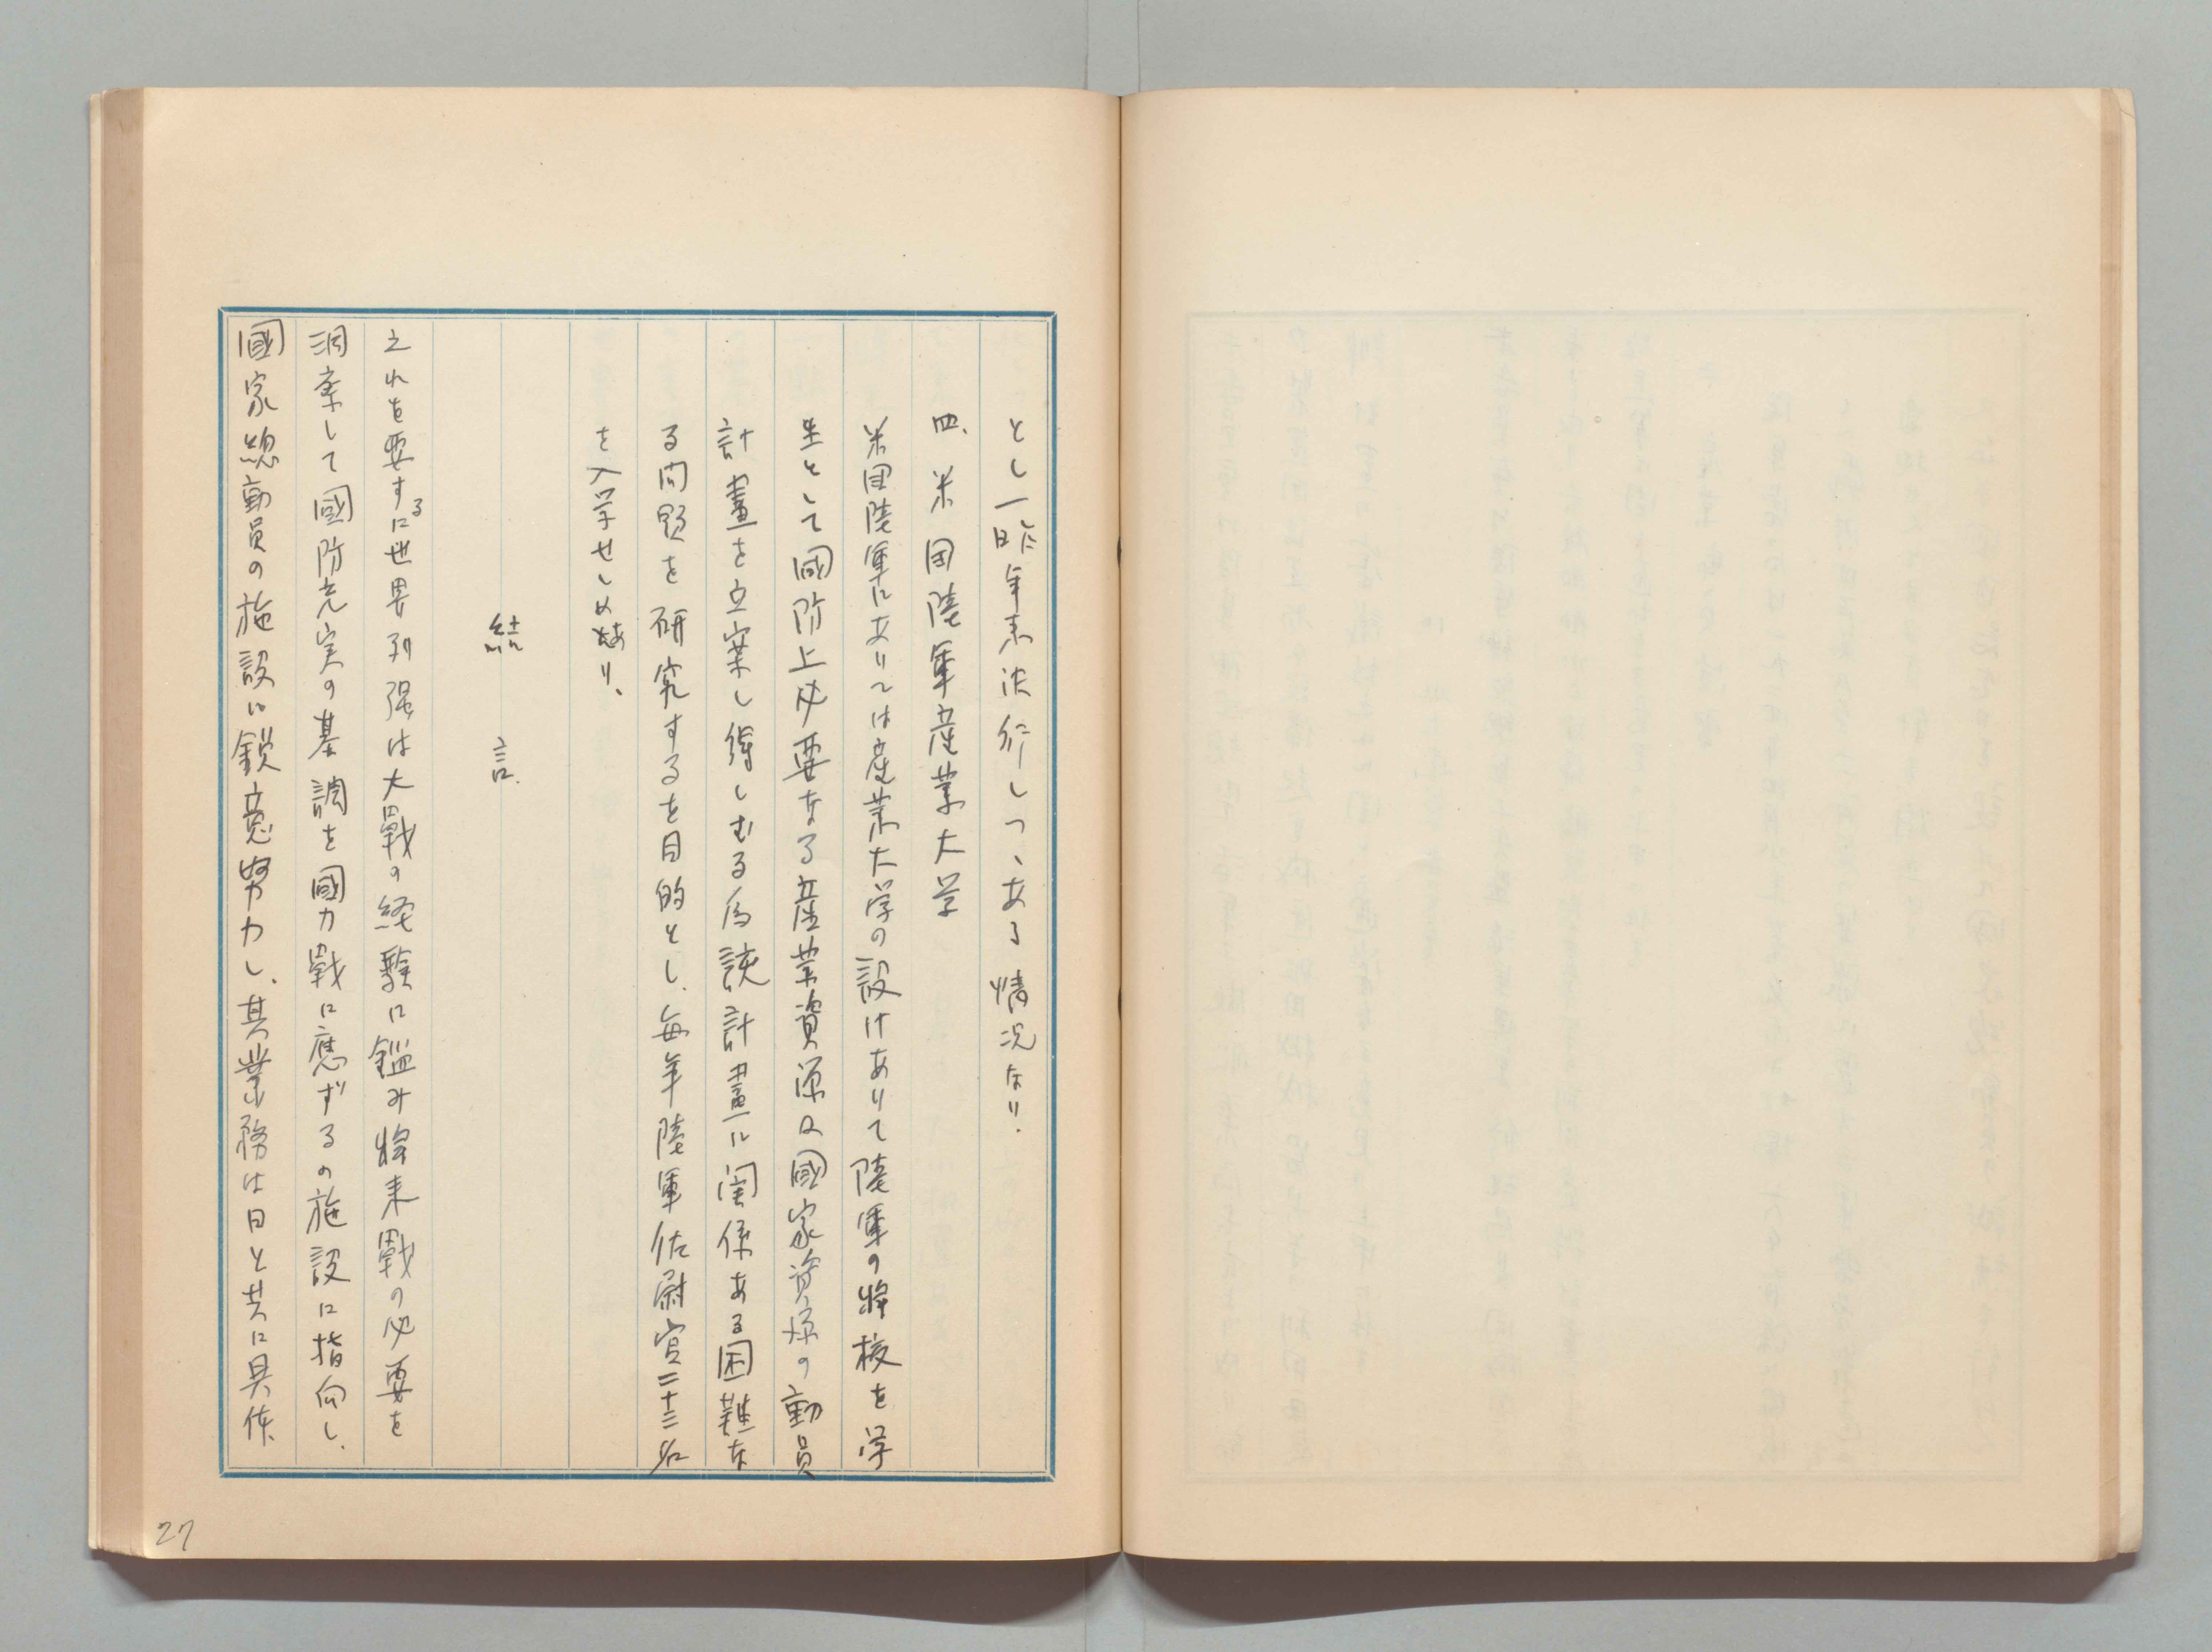 とし一昨年来決行しつゝある情況なり.
四、米国陸軍産業大学
米国陸軍にありては産業大学の設けありて陸軍の将校を学
生として國防上必要なる産業資源及國家資源の動員
計畫を立案し得しむる為該計畫に関係ある困難な
る問題を研究するを目的とし、毎年陸軍佐尉官二十三名
を入学せしめあり、
結言.
之れを要するに世界列强は大戰の経験に鑑み将来戰の必要を
洞察して國防充実の基調を國力戰に應ずるの施設に指向し、
國家總動員の施設に鋭意努力し、其業務は日と共に具体
27